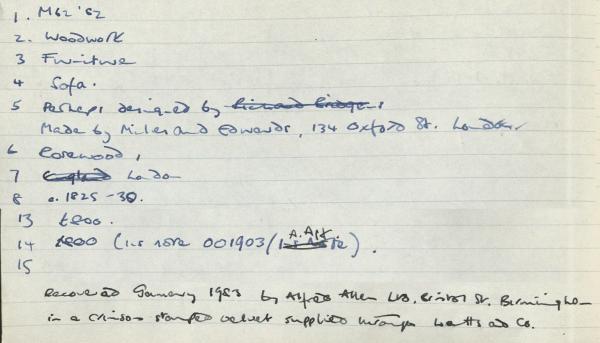 1. M62 '82
2. Woodwork
3 Furniture
4 Sofa.
5 Perhaps designed by Richard Bridgens
Made by Miles and Edwards, 134 Oxford St. London.
6 Rosewood,
7 England London
8 c. 1825-30.
13 £800.
14 £800 (
A. Art.
001903/
15
Recovered January 1983 by Alfred Allen Ltd, Bristol St. Birmingham
in a crimson stamped velvet supplied through Watts and Co.